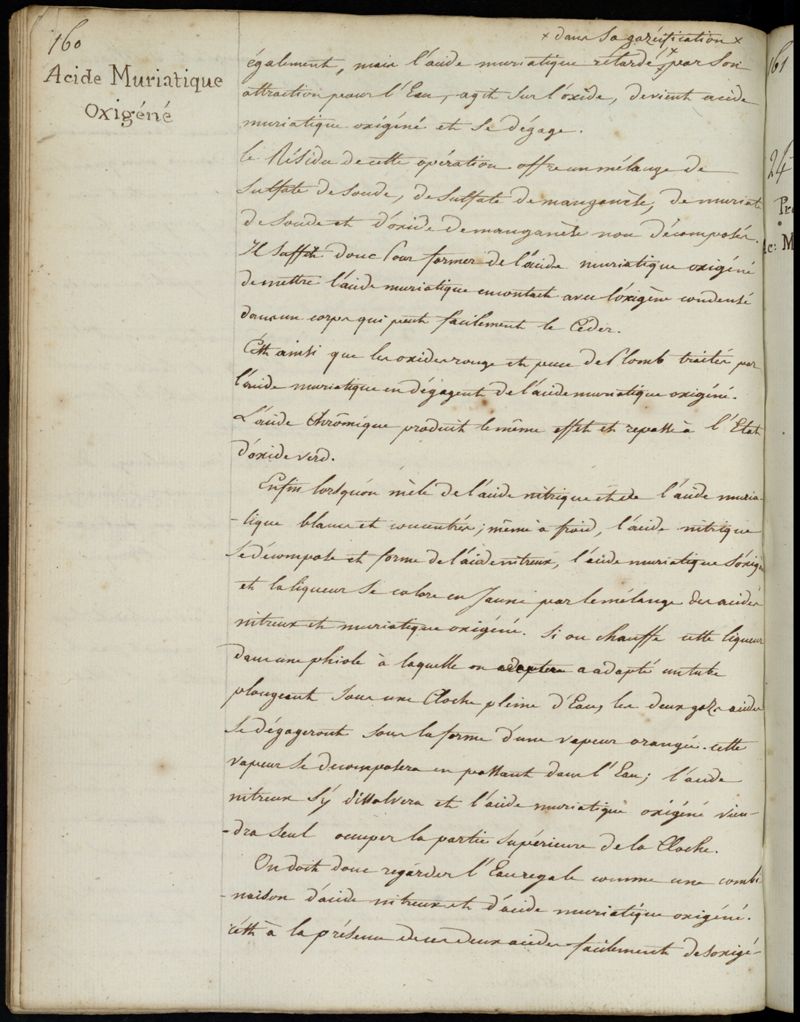 160
Acide Muriatique
Oxigéné
× dans sa gazéification ×
également, mais l'acide muriatique retardé × par son
attraction pour l'Eau, agit sur l'oxide, devient acide
muriatique oxigéné et se dégage.
le Résidu de cette opération offre un mélange de
sulfate de soude, de sulfate de manganèse, de muriate
de soude et d'oxide de manganèse non décomposé.
Il suffit donc pour former de l'acide muriatique oxigéné
de mettre l'acide muriatique en contact avec l'oxigène condensé
dans un corps qui peut facilement le Céder.
C'est ainsi que les oxides rouge et puce de Plomb traités par
l'acide muriatique en dégagent de l'acide muriatique oxigéné.
L'acide Chrômique produit le même effet et repasse à l'Etat
d'oxide verd.
Enfin lorsqu'on mêle de l'acide nitrique et de l'acide muria-
-tique blancs et concentrés; même à froid, l'acide nitrique
se décompose et forme de l'acide nitreux, l'acide muriatique s'oxigè
et la liqueur se colore en Jaune par le mélange des acides
nitreux et muriatique oxigéné. Si on chauffe cette liqueur
dans une phiole à laquelle on a adapté un tube
plongeant sous une Cloche pleine d'Eau, les deux gazs acides
se dégageront sous la forme d'une vapeur orangée. cette
vapeur se décomposera en passant dans l'Eau; l'acide
nitreux s'y dissolvera et l'acide muriatique oxigéné vien-
-dra seul occuper la partie supérieure de la Cloche.
On doit donc regarder l'Eau regale comme une combi-
-naison d'acide nitreux et d'acide muriatique oxigéné.
c'est à la présence de ces deux acides facilement desoxigé-
161
24
Pr
Ac: M